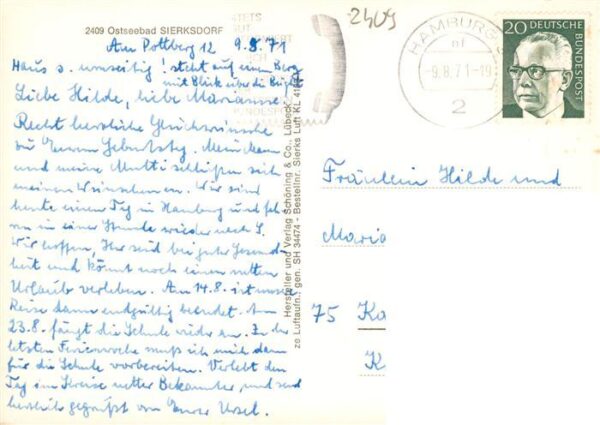 2409 Ostseebad SIERKSDORF
2409
Am Pottberg 12 9.8.71
Haus s. umseitig! steht auf einem Berg
mit Blick über die Bucht
Liebe Hilde, liebe Marianne!
Recht herzliche Glückwünsche
zu Eurem Geburtstag.
und meine Mutti schließen sich
meinen Wünschen. Wir sind
heute einen Tag in Hamburg und fah-
ren in einer Stunde wieder nach S.
Wir hoffen, Ihr seid bei guter Gesund-
heit und könnt noch einen netten
Urlaub verleben. Am 14.8. ist unsere
Reise dann endgültig beendet. Am
23.8. fängt die Schule wieder an. In der
letzten Ferienwoche muß ich mich dann
für die Schule vorbereiten. Verlebt den
Tag im Kreise netter Bekannter, und seid
herzlich gegrüßt von Eurer Ursel.
Hersteller und Verlag Schöning & Co., Lübeck
ze Luftaufn.: gen. SH 34474 - Bestellnr. Sierks Luft KL 4
HAMBURG
-9.8.71-19
2
20 DEUTSCHE
BUNDESPOST
Fräulein Hilde und
Maria
75 Ka
K